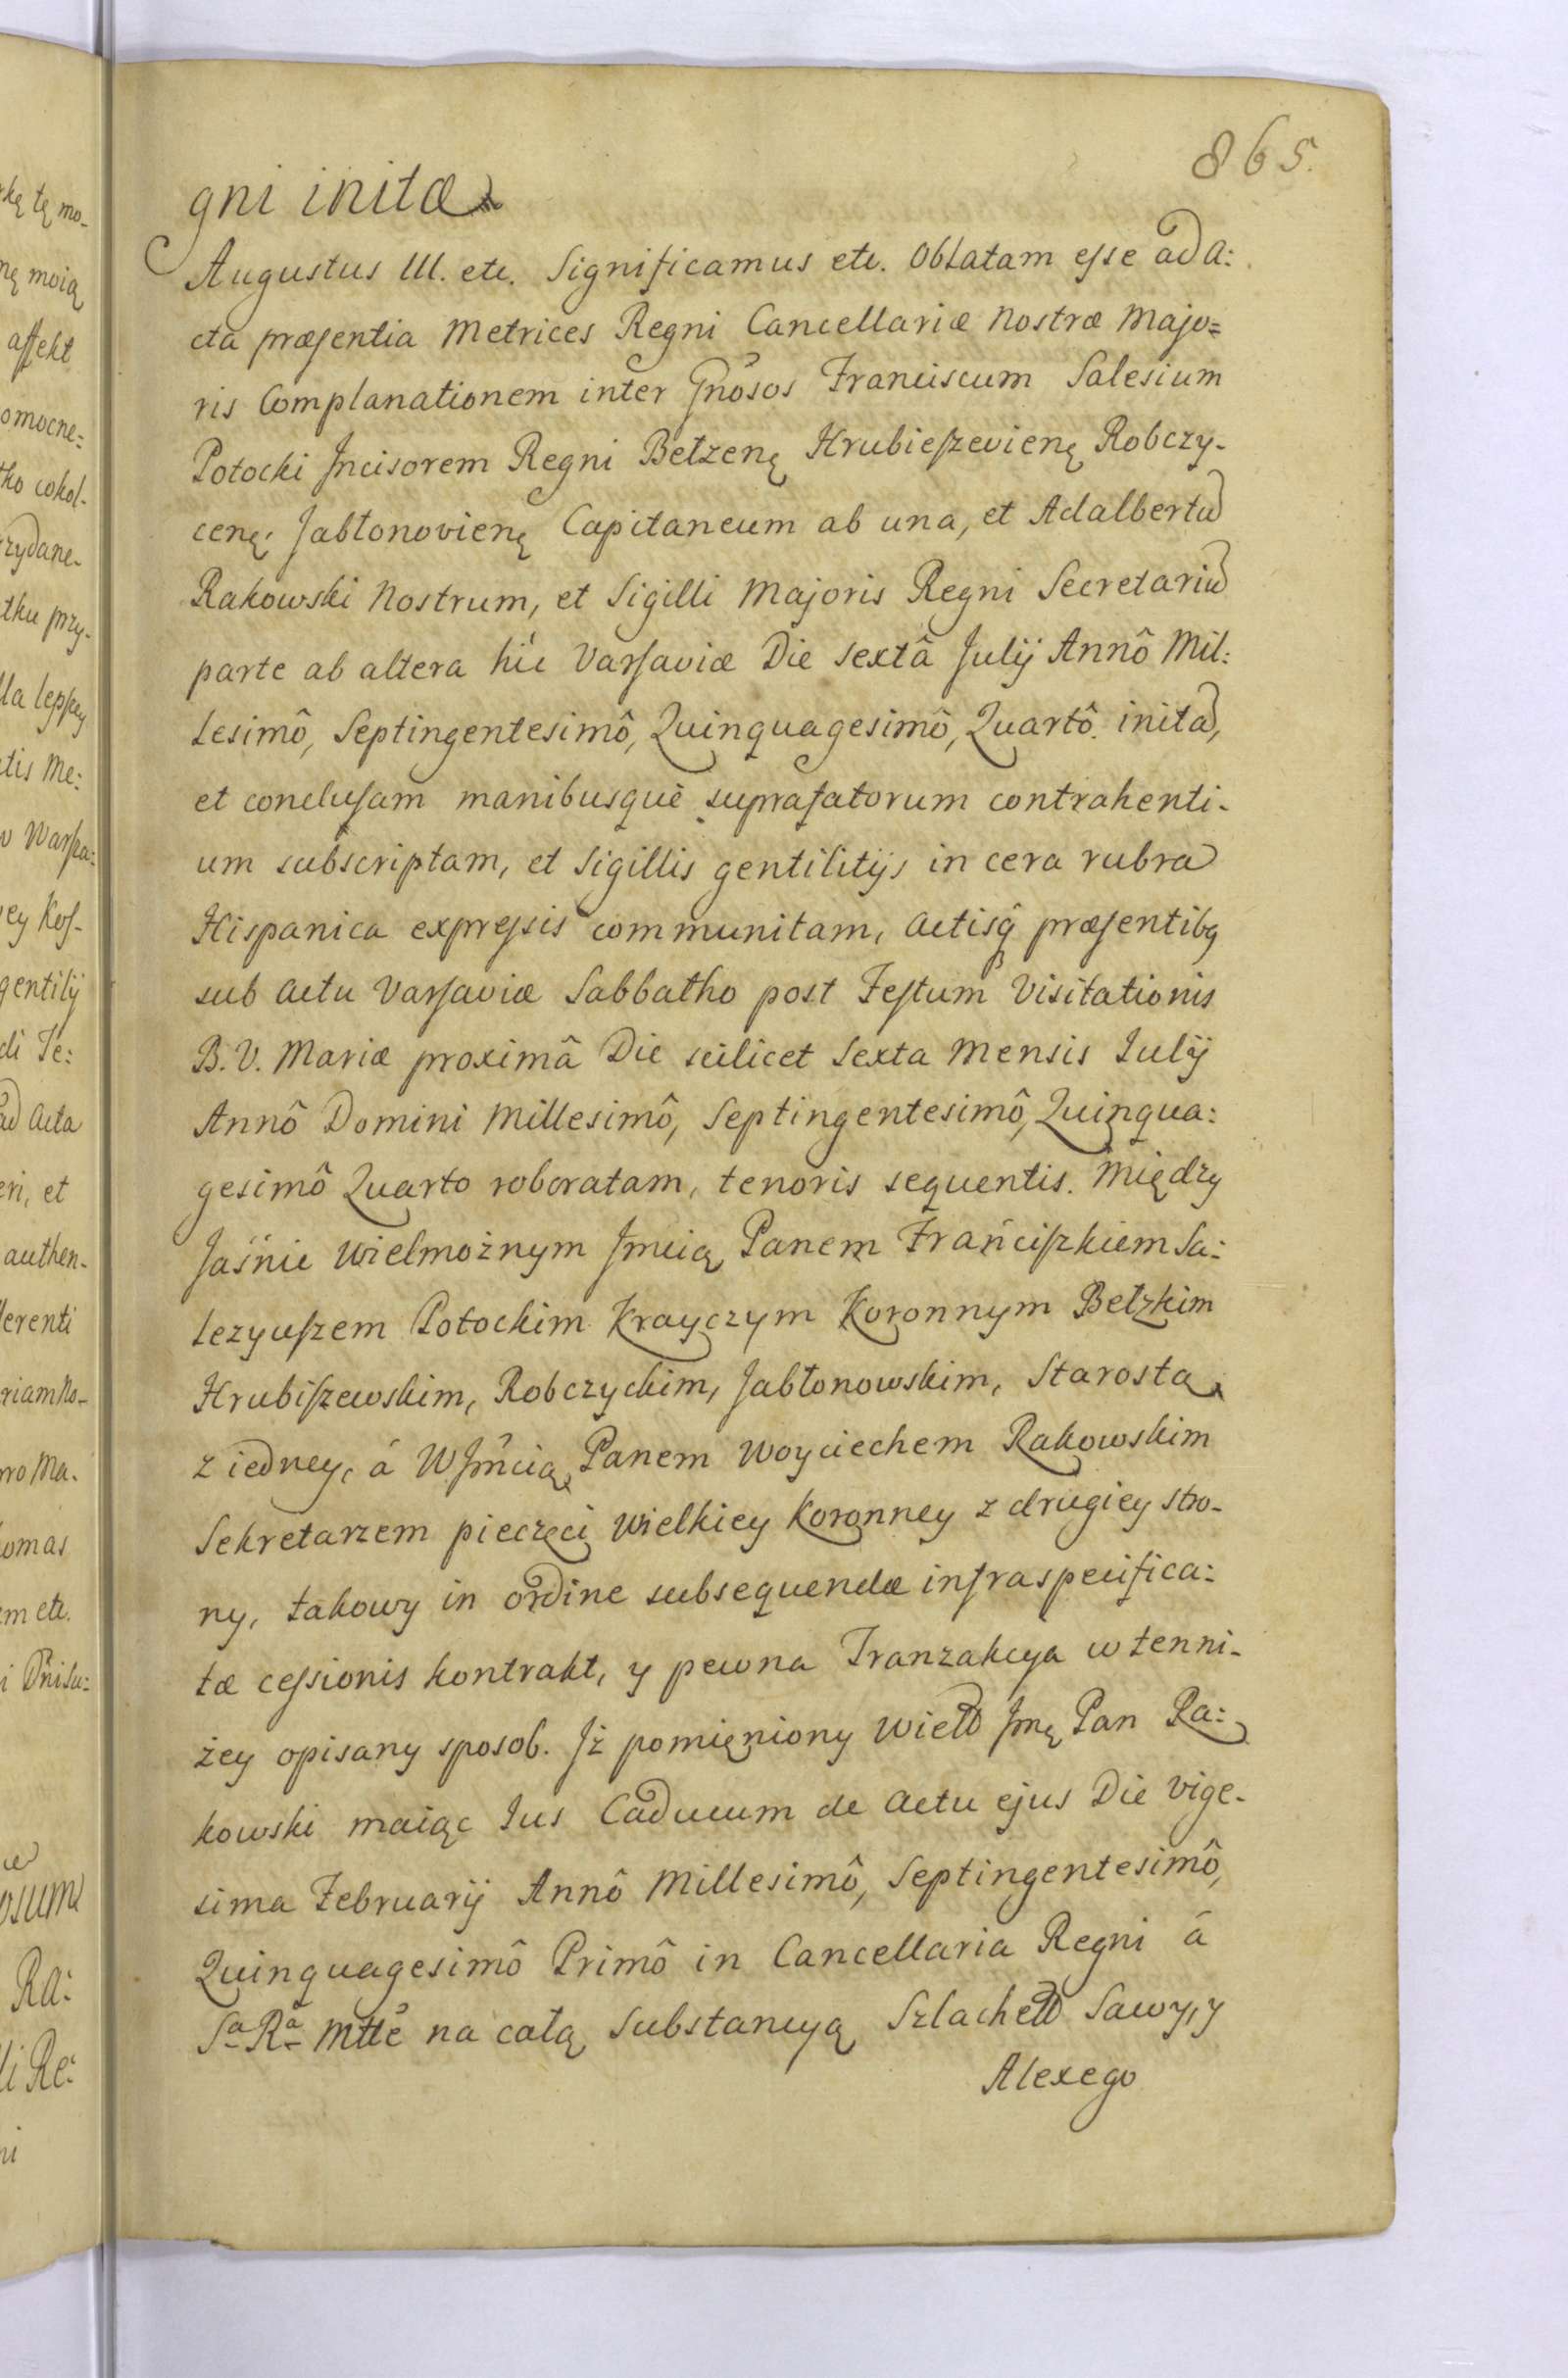 865.
gni initæ
Augustus III. etc. Significamus etc. Oblatam esse ad A:
cta præsentia Metrices Regni Cancellariæ Nostræ Majo=
ris Complanationem inter Gñosos Franciscum Salesium
Potocki Incisorem Regni Bełzeńę Hrubieszevienę Robczy-
cenę, Jabłonovienę Capitaneum ab una, et Adalbertũ
Rakowski Nostrum, et Sigilli Majoris Regni Secretariũ
parte ab altera hîc Varsaviæ Die sextâ Julij Annô Mil:
lesimô, Septingentesimô, Quinquagesimô, Quartô. initã,
et conclusam manibusquè suprafatorum contrahenti-
um subscriptam, et Sigillis gentilitijs in cera rubra
Hispanica expressis communitam, Actisq̃ præsentibꝫ
sub Actu Varsaviæ Sabbatho post Festum Visitationis
B. V. Mariæ proximâ Die scilicet Sexta Mensis Julij
Annô Domini Millesimô, Septingentesimô, Quinqua:
gesimô Quarto roboratam, tenoris sequentis. Między
Jaśnie Wielmożnym Jmcią Panem Frańciszkiem Sa:
lezyuszem Potockim Krayczym Koronnym Bełzkim
Hrubiszewskim, Robczyckim, Jabłonowskim, Starostą
z iedney, á WJm̃cią Panem Woyciechem Rakowskim
Sekretarzem pieczęci Wielkiey Koronney z drugiey stro-
ny, takowy in ordine subsequendæ infraspecifica:
tæ cessionis kontrakt, y pewna Tranzakcya w tenni-
żey opisany sposob. Iż pomięniony Wielꝺ Jmę Pan Ra:
kowski maiąc Jus Caducum de Actu ejus Die vige-
sima Februarij Annô Millesimô, Septingentesimô,
Quinquagesimô Primô in Cancellaria Regni á
Sᵃ Rᵃ Mtte na całą Substancyą Szlachetꝺ Sawy, y
Alexego
kę tę mo-
nę moią
affekt
omocne:
tko cokol-
rzydane-
tku przy-
lla lepszey
tis Me:
w Warsza:
ey Kos-
gentilij
di Fe:
ad Acta
eri, et
authen-
erenti
riam No-
ro Ma.
omas
em etc.
i Dñi Su:
osum
Ra:
li Re:
ni